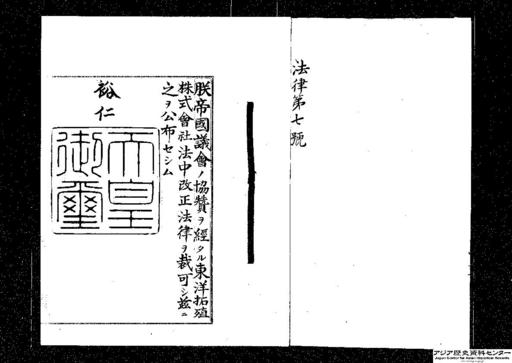 法律第七號
朕帝國議會ノ協贊ヲ經タル東洋拓殖
株式會社法中改正法律ヲ裁可シ茲ニ
之ヲ公布セシム
裕仁
天皇
御璽
アジア歴史資料センター
Japan Center for Asian Historical Records